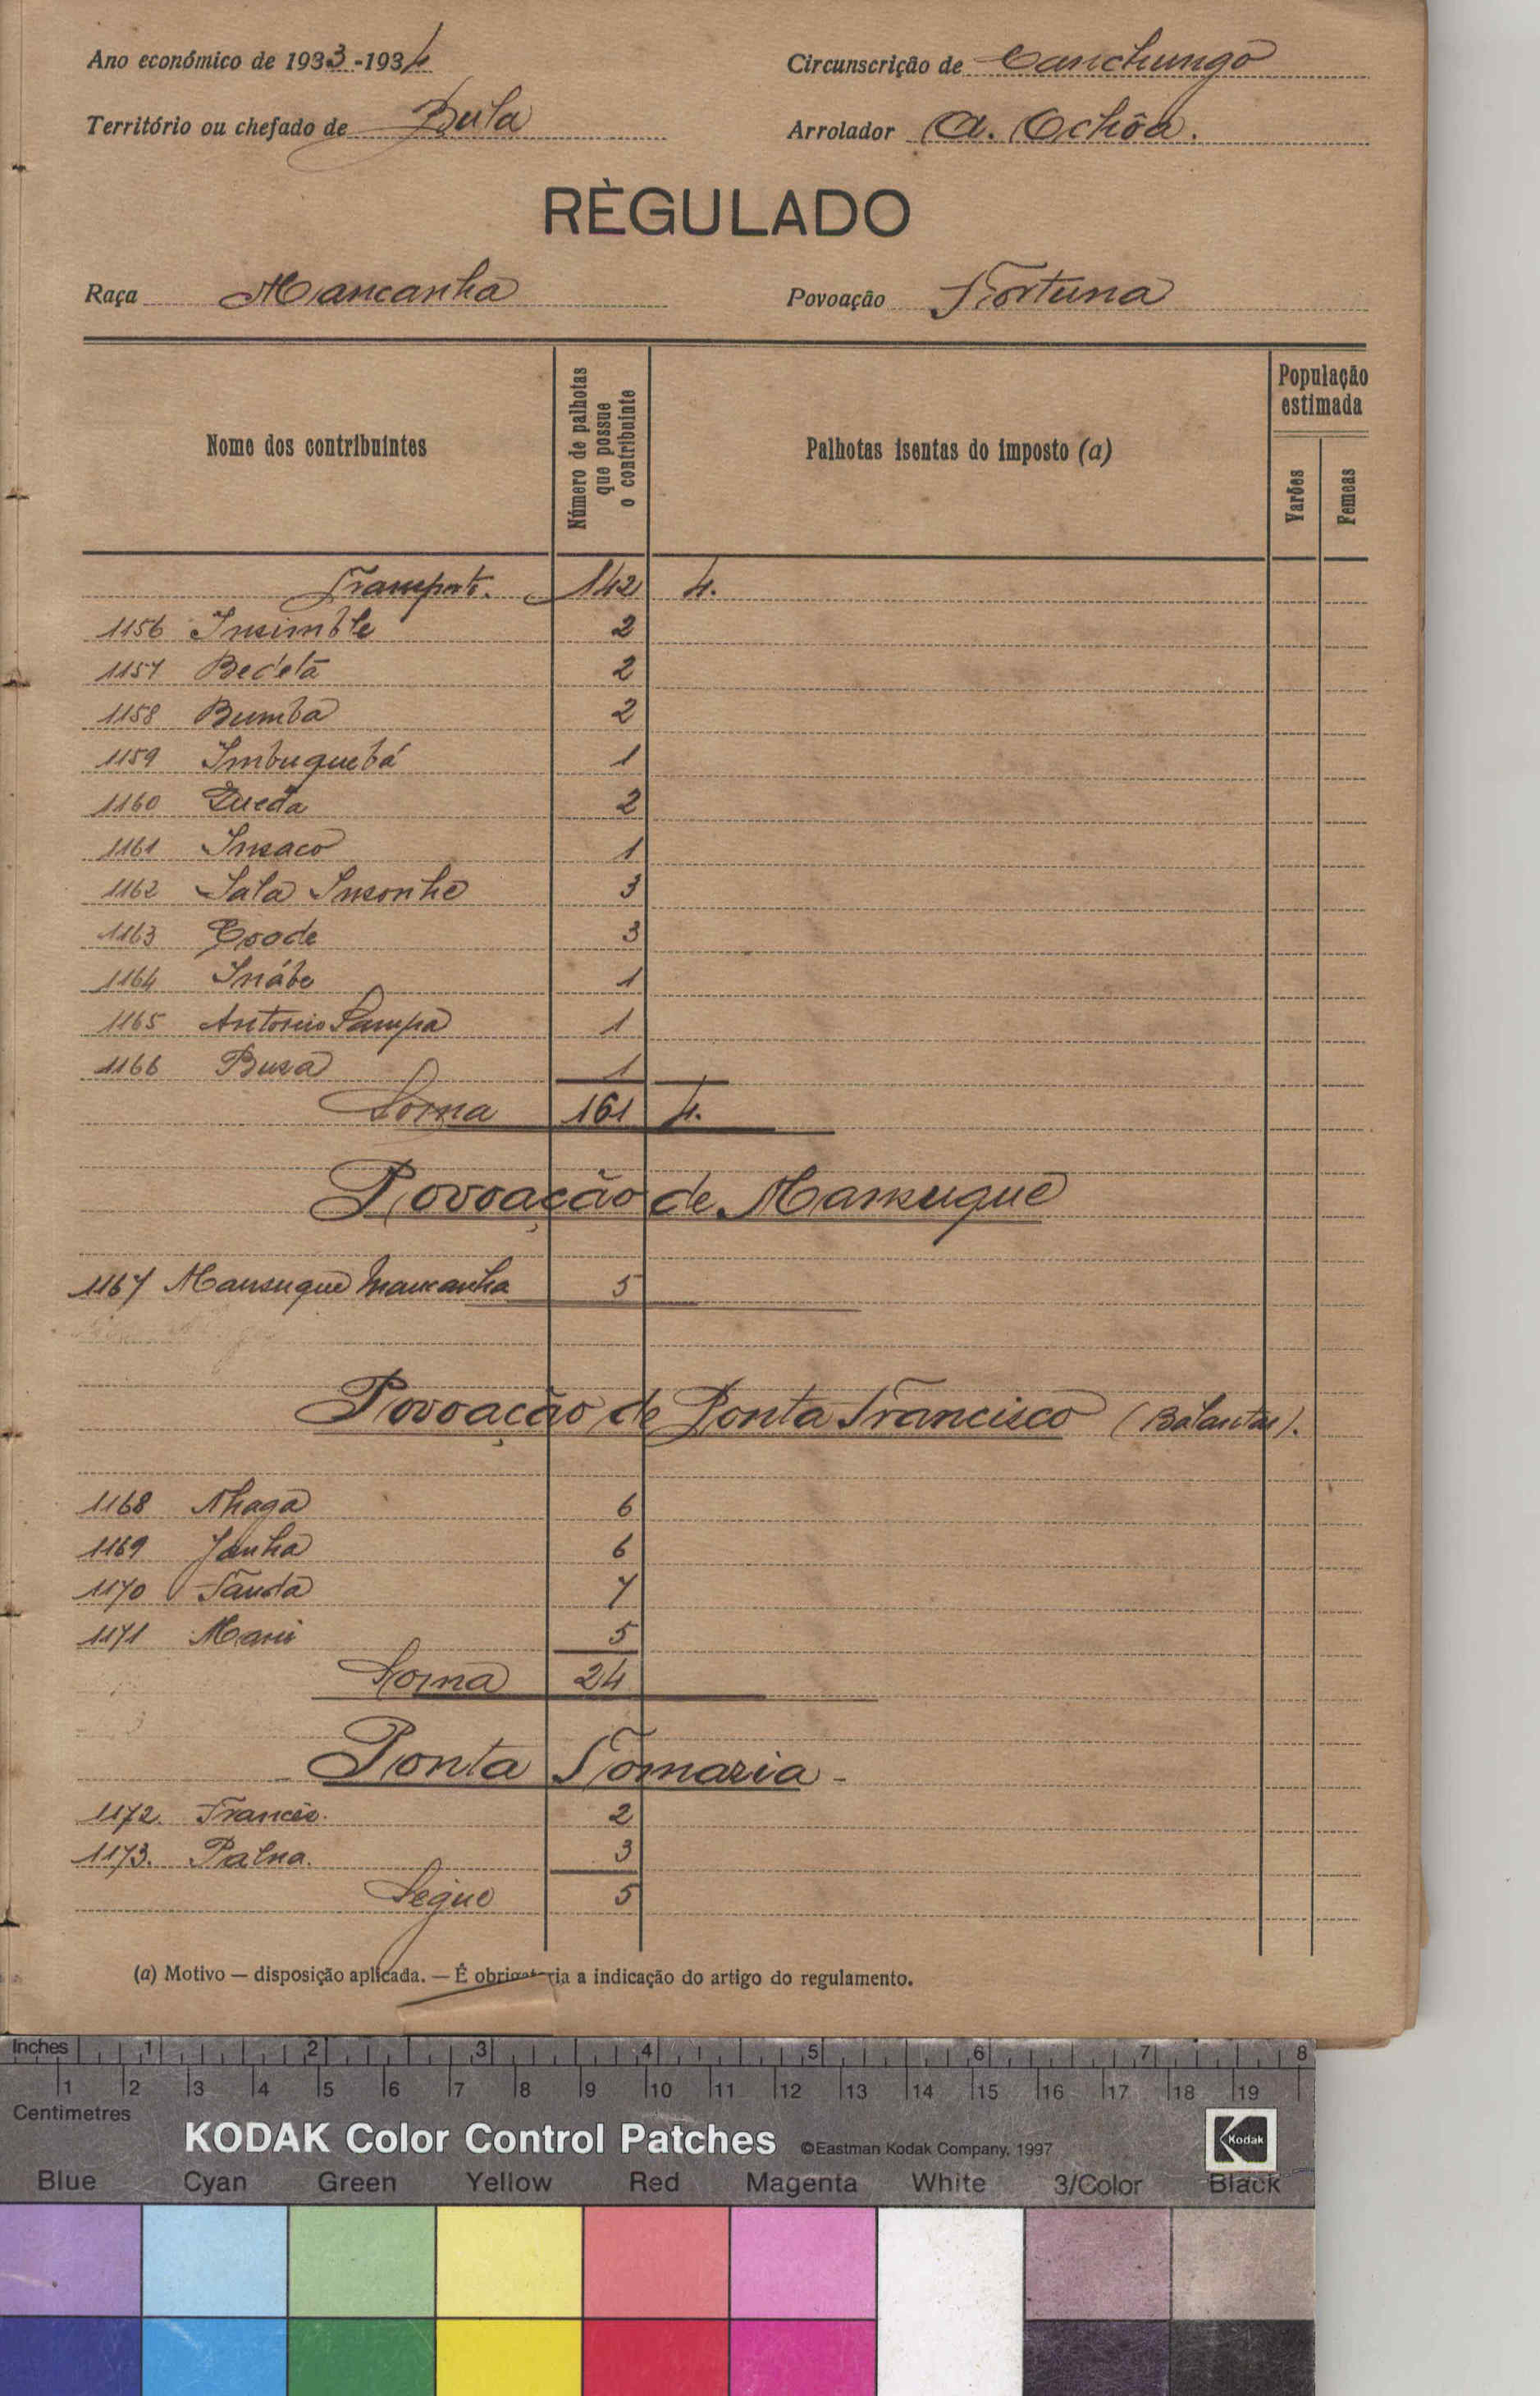 Ano económico de 1933-1934 Circunscrição de Canchungo
Território ou chefado de Bula Arrolador A. Ochôa.
RÈGULADO
Raça Mancanha Povoação Fortuna
Nome dos contribuintes Número de palhotas que possue o contribuinte Palhotas isentas do imposto (a) População estimada Varões Femeas
Transporte. 142 4.
1156 Insimble 2
1157 Bedetá 2
1158 Bumba 2
1159 Imbuquebá 1
1160 Queda 2
1161 Insaco 1
1162 Sala Insonhe 3
1163 3
1164 Inábe 1
1165 Antonio Sampa 1
1166 Busa 1
Soma 161 4.
Povoação de Mansugue
1167 Mansugue Mancanha 5
Povoação de Ponta Francisco (Balantas).
1168 Nhaga 6
1169 Janha 6
1170 Tanda 7
1171 Mani 5
Soma 24
Ponta Tomazia -
1172. 2
1173. Palna. 3
Segue 5
(a) Motivo — disposição aplicada. — É obrigatoria a indicação do artigo do regulamento.
Inches 1 2 3 4 5 6 7 8
1 2 3 4 5 6 7 8 9 10 11 12 13 14 15 16 17 18 19
Centimetres
KODAK Color Control Patches ©Eastman Kodak Company, 1997 Kodak
Blue Cyan Green Yellow Red Magenta White 3/Color Black